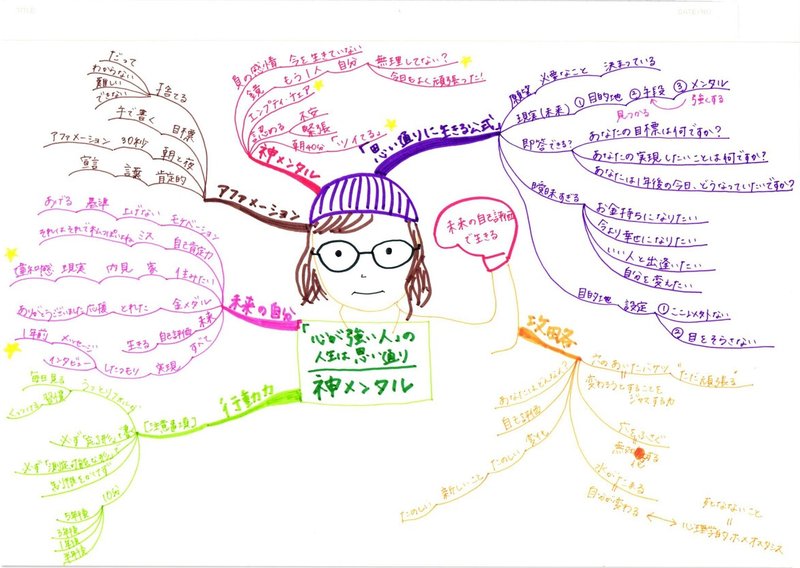 「心が強い人」の
人生は思い通り
神メンタル
未来の自己評価
で生きる
「思い通りに生きる公式」
願望 必要なこと 決まっている
現在(未来) ①目的地 ②手段 ③メンタル
見つかる 強くする
即答できる?
あなたの目標は何ですか?
あなたの実現したいことは何ですか?
あなたは1年後の今日、どうなっていたいですか?
曖昧すぎる
お金持ちになりたい
今より幸せになりたい
いい人と出逢いたい
自分を変えたい
目的地 設定
①ここしかメクトない
②目をそらさない
攻略
穴のあいたバケツ "ただ頑張る"
変わろうとすることを
ジャマする力
穴をふさぐ
水がたまる
自分が変わる
心理学的ホメオスタシス
死なないこと
あなたはどんな人?
自己評価
変化 たのしい
新しいこと たのしい
行動力
[注意事項]
うっとりできるか
毎日見る
習慣
必ず「完了形」で書く
必ず「測定可能な形」で
見栄をかけず
10分
5年後
3年後
1年後
半年後
未来の自分
モチベーション 上げない 基準 あげる
自己肯定力 ミス それはそれで私っぽいよね
住みたい 家 内見 現実 違和感
金メダル とれた 応援 ありがとうございました
未来 自己評価 生きる
すべて 実現 したつもり
メッセージ 1年前
インタビュー
アファメーション
捨てる
だって
わからない
難しい
できない
目標 手で書く
朝と夜 30秒 アファメーション
肯定的 言葉 宣言
神メンタル
負の感情 今を生きていない
鏡 もう1人 自分
無理してない?
今日もよく頑張った!
エンプティ・チェア
認める
不安
緊張
朝40分 「ツイてる」